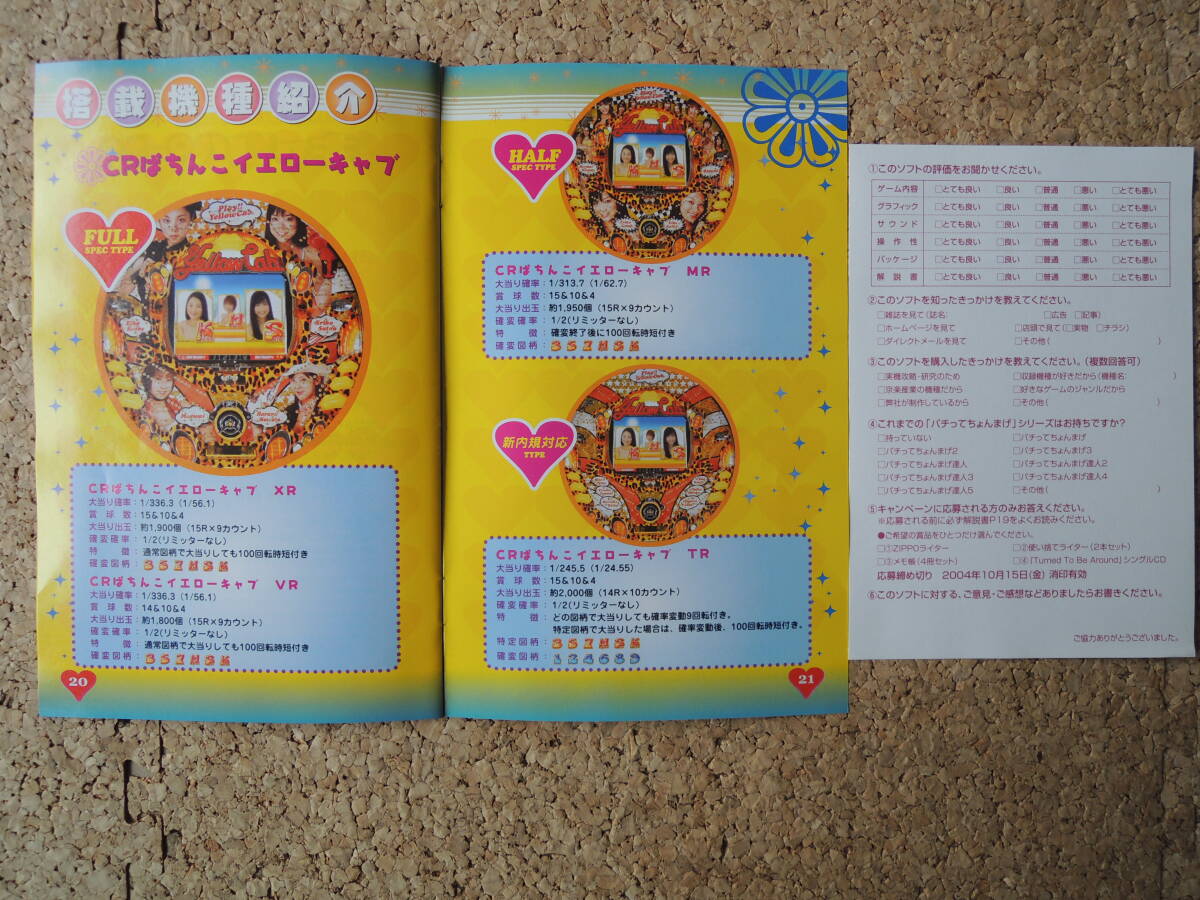 搭載機種紹介
CRぱちんこイエローキャブ
FULL
SPEC TYPE
Play!!
YellowCab
Yellow Cab
CRぱちんこイエローキャブ XR
大当り確率:1/336.3(1/56.1)
賞球数:15&10&4
大当り出玉:約1,900個(15R×9カウント)
確変確率:1/2(リミッターなし)
特徴:通常図柄で大当りしても100回転時短付き
確変図柄:
CRぱちんこイエローキャブ VR
大当り確率:1/336.3(1/56.1)
賞球数:14&10&4
大当り出玉:約1,800個(15R×9カウント)
確変確率:1/2(リミッターなし)
特徴:通常図柄で大当りしても100回転時短付き
確変図柄:
20
HALF
SPEC TYPE
CRぱちんこイエローキャブ MR
大当り確率:1/313.7(1/62.7)
賞球数:15&10&4
大当り出玉:約1,950個(15R×9カウント)
確変確率:1/2(リミッターなし)
特徴:確変終了後に100回転時短付き
確変図柄:
新内規対応
TYPE
CRぱちんこイエローキャブ TR
大当り確率:1/245.5(1/24.55)
賞球数:15&10&4
大当り出玉:約2,000個(14R×10カウント)
確変確率:1/2(リミッターなし)
特徴:どの図柄で大当りしても確率変動9回転付き。
特定図柄で大当りした場合は、確率変動後、100回転時短付き。
特定図柄:
確変図柄:
21
①このソフトの評価をお聞かせください。
ゲーム内容 □とても良い □良い □普通 □悪い □とても悪い
グラフィック □とても良い □良い □普通 □悪い □とても悪い
サウンド □とても良い □良い □普通 □悪い □とても悪い
操作性 □とても良い □良い □普通 □悪い □とても悪い
パッケージ □とても良い □良い □普通 □悪い □とても悪い
解説書 □とても良い □良い □普通 □悪い □とても悪い
②このソフトを知ったきっかけを教えてください。
□雑誌を見て(誌名: □広告 □記事)
□ホームページを見て □店頭で見て(□実物 □チラシ)
□ダイレクトメールを見て □その他( )
③このソフトを購入したきっかけを教えてください。(複数回答可)
□実機攻略・研究のため □収録機種が好きだから(機種名: )
□京楽産業の機種だから □好きなゲームのジャンルだから
□弊社が制作しているから □その他( )
④これまでの「パチってちょんまげ」シリーズはお持ちですか?
□持っていない □パチってちょんまげ
□パチってちょんまげ2 □パチってちょんまげ3
□パチってちょんまげ達人 □パチってちょんまげ達人2
□パチってちょんまげ達人3 □パチってちょんまげ達人4
□パチってちょんまげ達人5 □その他( )
⑤キャンペーンに応募される方のみお答えください。
※応募される前に必ず解説書P19をよくお読みください。
●ご希望の賞品をひとつだけ選んでください。
□①ZIPPOライター □②使い捨てライター(2本セット)
□③メモ帳(4冊セット) □④「Turned To Be Around」シングルCD
応募締め切り 2004年10月15日(金) 消印有効
⑥このソフトに対する、ご意見・ご感想などありましたらお書きください。
ご協力ありがとうございました。